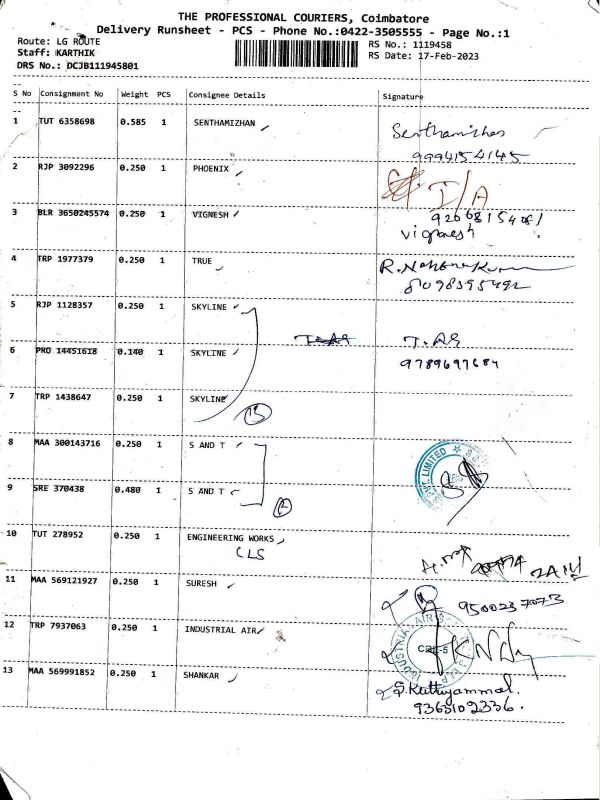 THE PROFESSIONAL COURIERS, Coimbatore
Delivery Runsheet - PCS - Phone No.:0422-3505555 - Page No.:1
Route: LG ROUTE
Staff: KARTHIK
DRS No.: DCJB111945801
RS No.: 1119458
RS Date: 17-Feb-2023
S No Consignment No Weight PCS Consignee Details Signature
1 TUT 6358698 0.585 1 SENTHAMIZHAN Senthamizhan
9994154145
2 RJP 3092296 0.250 1 PHOENIX I/A
3 BLR 3650245574 0.250 1 VIGNESH
vignesh
4 TRP 1977379 0.250 1 TRUE
8098395492
5 RJP 1128357 0.250 1 SKYLINE
6 PRO 14451618 0.140 1 SKYLINE T.AS
9789697684
7 TRP 1438647 0.250 1 SKYLINE
8 MAA 300143716 0.250 1 S AND T
LIMITED
9 SRE 370438 0.480 1 S AND T
10 TUT 278952 0.250 1 ENGINEERING WORKS
CLS
11 MAA 569121927 0.250 1 SURESH 9500237073
12 TRP 7937063 0.250 1 INDUSTRIAL AIR
13 MAA 569991852 0.250 1 SHANKAR S.Kuttiyammal.
9365102336.